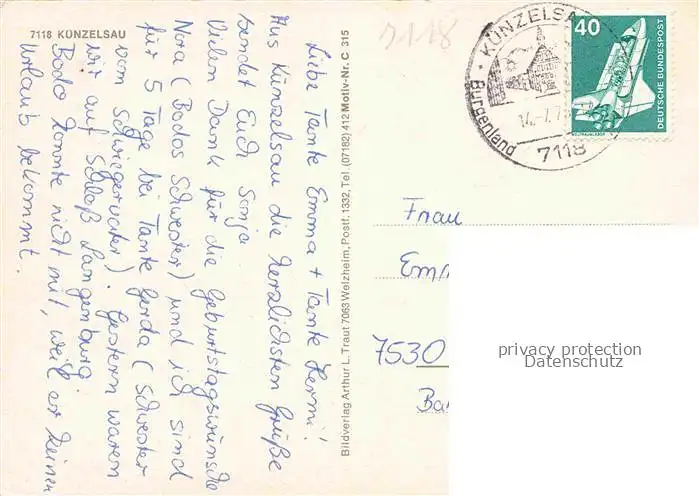 7118 KÜNZELSAU
Liebe Tante Emma + Tante Hermi!
Aus Künzelsau die herzlichsten Grüße
sendet Euch Sonja
Vielen Dank für die Geburtstagswünsche
Nora (Bodos Schwester) und ich sind
für 5 Tage bei Tante Gerda (Schwester
vom Schwiegervater). Gestern waren
wir auf Schloß Langenburg
Bodo konnte nicht mit, weil er keinen
Urlaub bekommt.
Bildverlag Arthur L. Traut 7063 Welzheim, Postf. 1332, Tel. (07182) 412 Motiv-Nr. C 315
7118
KÜNZELSAU
Burgenland
14.-7.7
7118
40
DEUTSCHE BUNDESPOST
Frau
Em
7530
Ba
privacy protection
Datenschutz